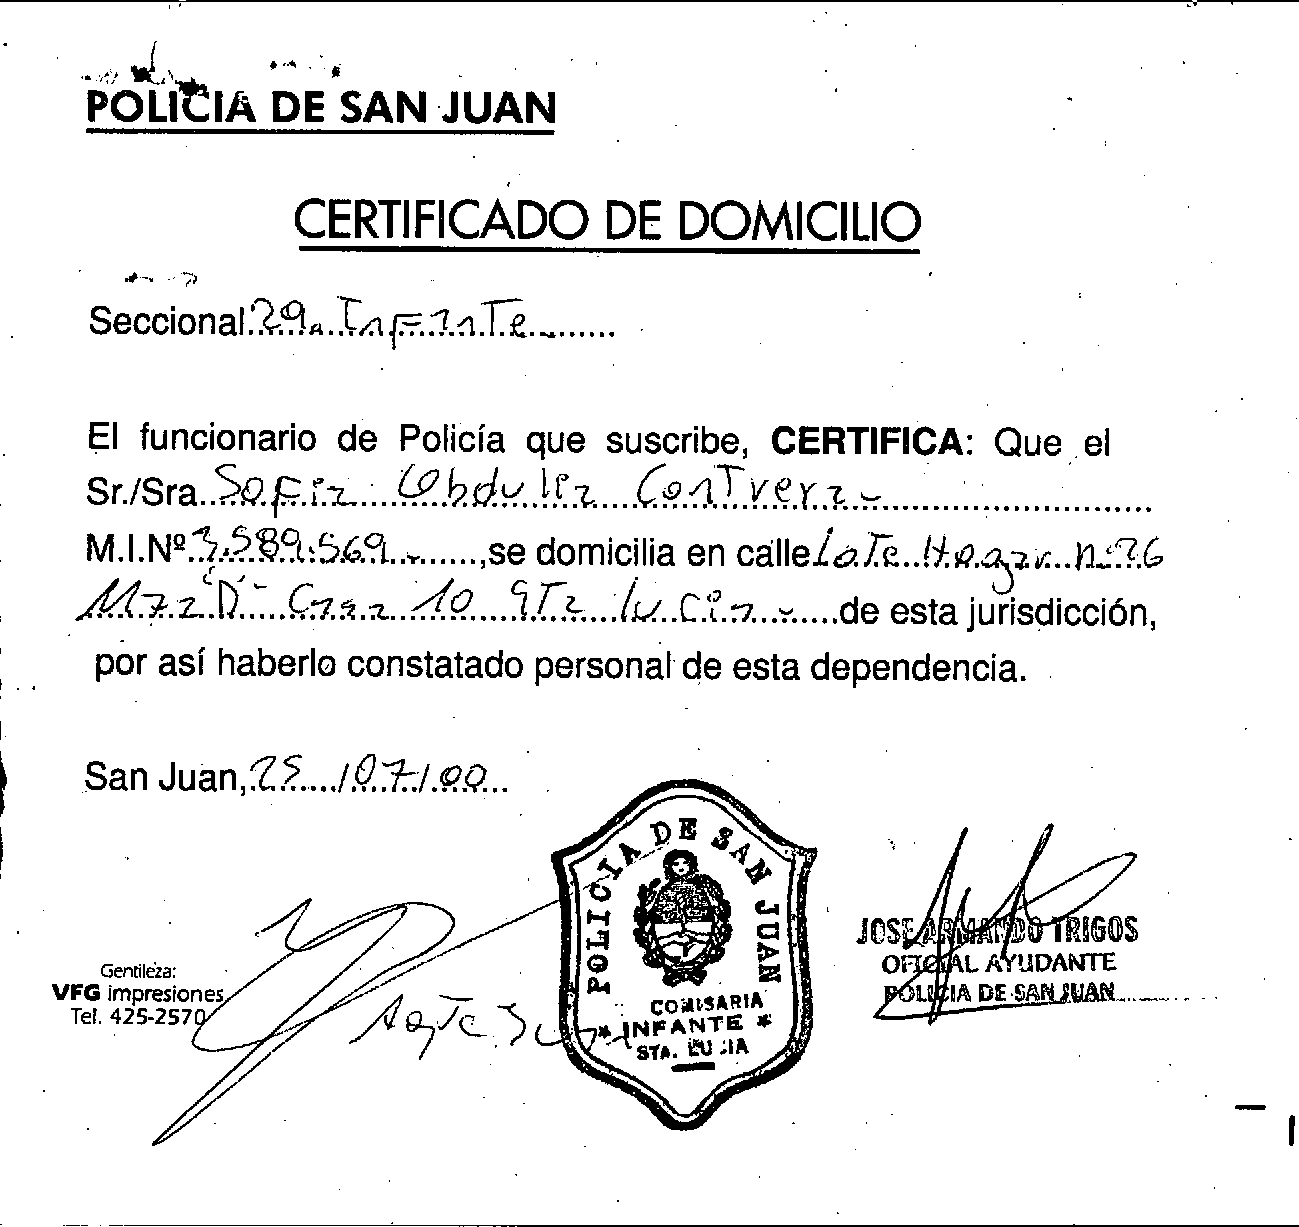 POLICIA DE SAN JUAN
CERTIFICADO DE DOMICILIO
Seccional 29a Infante
El funcionario de Policía que suscribe, CERTIFICA: Que el
Sr./Sra. Sofia Obdulia Contrera
M.I.Nº 3.589.569 , se domicilia en calle Lote Hogar nº 26
Mza "D" Casa 10 Sta Lucia de esta jurisdicción,
por así haberlo constatado personal de esta dependencia.
San Juan, 25/07/00
POLICIA DE SAN JUAN
COMISARIA
* INFANTE *
STA. LUCIA
JOSE ARMANDO TRIGOS
OFICIAL AYUDANTE
POLICIA DE SAN JUAN
Gentileza:
VFG impresiones
Tel. 425-2570